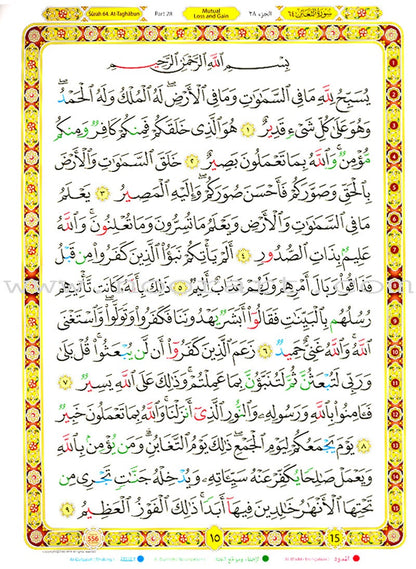 Sûrah 64. At-Taghâbun Part 28 Mutual Loss and Gain الجزء ٢٨ سُورَةُ التَّغَابُنِ ٦٤
بِسْمِ اللَّهِ الرَّحْمَٰنِ الرَّحِيمِ
يُسَبِّحُ لِلَّهِ مَا فِي السَّمَاوَاتِ وَمَا فِي الْأَرْضِ ۖ لَهُ الْمُلْكُ وَلَهُ الْحَمْدُ ۖ
وَهُوَ عَلَىٰ كُلِّ شَيْءٍ قَدِيرٌ ١ هُوَ الَّذِي خَلَقَكُمْ فَمِنكُمْ كَافِرٌ وَمِنكُم
مُّؤْمِنٌ ۚ وَاللَّهُ بِمَا تَعْمَلُونَ بَصِيرٌ ٢ خَلَقَ السَّمَاوَاتِ وَالْأَرْضَ
بِالْحَقِّ وَصَوَّرَكُمْ فَأَحْسَنَ صُوَرَكُمْ ۖ وَإِلَيْهِ الْمَصِيرُ ٣ يَعْلَمُ
مَا فِي السَّمَاوَاتِ وَالْأَرْضِ وَيَعْلَمُ مَا تُسِرُّونَ وَمَا تُعْلِنُونَ ۚ وَاللَّهُ
عَلِيمٌ بِذَاتِ الصُّدُورِ ٤ أَلَمْ يَأْتِكُمْ نَبَأُ الَّذِينَ كَفَرُوا مِن قَبْلُ
فَذَاقُوا وَبَالَ أَمْرِهِمْ وَلَهُمْ عَذَابٌ أَلِيمٌ ٥ ذَٰلِكَ بِأَنَّهُ كَانَت تَّأْتِيهِمْ
رُسُلُهُم بِالْبَيِّنَاتِ فَقَالُوا أَبَشَرٌ يَهْدُونَنَا فَكَفَرُوا وَتَوَلَّوا ۚ وَّاسْتَغْنَى
اللَّهُ ۚ وَاللَّهُ غَنِيٌّ حَمِيدٌ ٦ زَعَمَ الَّذِينَ كَفَرُوا أَن لَّن يُبْعَثُوا ۚ قُلْ بَلَىٰ
وَرَبِّي لَتُبْعَثُنَّ ثُمَّ لَتُنَبَّؤُنَّ بِمَا عَمِلْتُمْ ۚ وَذَٰلِكَ عَلَى اللَّهِ يَسِيرٌ ٧
فَآمِنُوا بِاللَّهِ وَرَسُولِهِ وَالنُّورِ الَّذِي أَنزَلْنَا ۚ وَاللَّهُ بِمَا تَعْمَلُونَ خَبِيرٌ
٨ يَوْمَ يَجْمَعُكُمْ لِيَوْمِ الْجَمْعِ ۖ ذَٰلِكَ يَوْمُ التَّغَابُنِ ۗ وَمَن يُؤْمِن بِاللَّهِ
وَيَعْمَلْ صَالِحًا يُكَفِّرْ عَنْهُ سَيِّئَاتِهِ وَيُدْخِلْهُ جَنَّاتٍ تَجْرِي مِن
تَحْتِهَا الْأَنْهَارُ خَالِدِينَ فِيهَا أَبَدًا ۚ ذَٰلِكَ الْفَوْزُ الْعَظِيمُ ٩
556 ١٥ 15